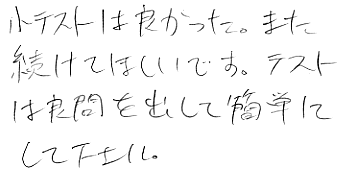 小テストは良かった。また
続けてほしいです。テスト
は良問を出して簡単に
して下さい。